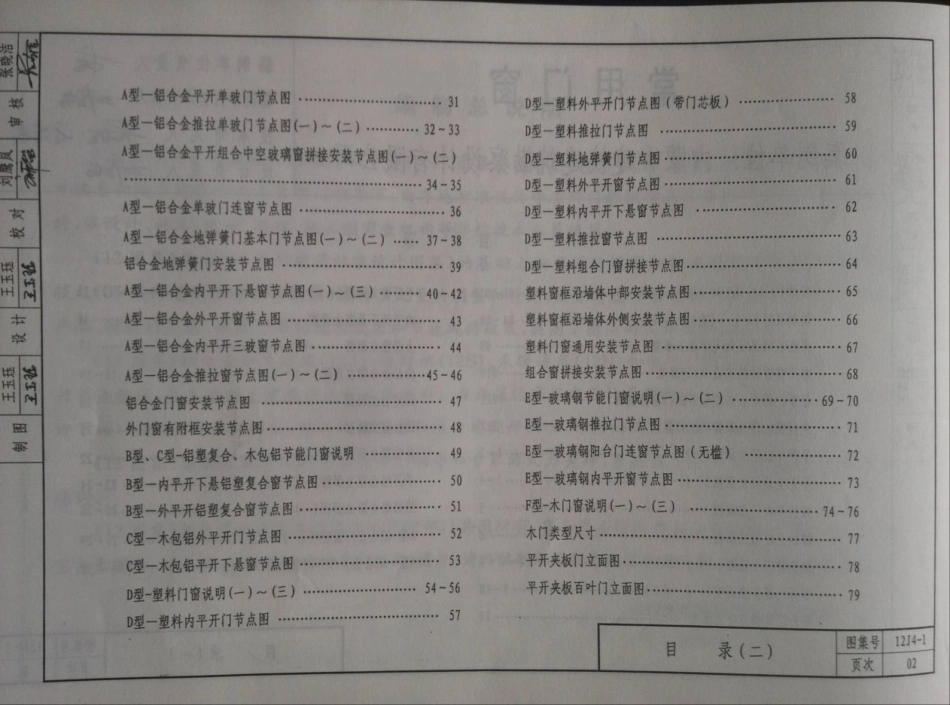 A型—铝合金平开单玻门节点图 …… 31
A型—铝合金推拉单玻门节点图(一)～(二) …… 32~33
A型—铝合金平开组合中空玻璃窗拼接安装节点图(一)～(二)
…… 34~35
A型—铝合金单玻门连窗节点图 …… 36
A型—铝合金地弹簧门基本门节点图(一)～(二) …… 37~38
铝合金地弹簧门安装节点图 …… 39
A型—铝合金内平开下悬窗节点图(一)～(三) …… 40~42
A型—铝合金外平开窗节点图 …… 43
A型—铝合金内平开三玻窗节点图 …… 44
A型—铝合金推拉窗节点图(一)～(二) …… 45~46
铝合金门窗安装节点图 …… 47
外门窗有附框安装节点图 …… 48
B型、C型-铝塑复合、木包铝节能门窗说明 …… 49
B型—内平开下悬铝塑复合窗节点图 …… 50
B型—外平开铝塑复合窗节点图 …… 51
C型—木包铝外平开门节点图 …… 52
C型—木包铝平开下悬窗节点图 …… 53
D型-塑料门窗说明(一)～(三) …… 54~56
D型—塑料内平开门节点图 …… 57
D型—塑料外平开门节点图(带门芯板) …… 58
D型—塑料推拉门节点图 …… 59
D型—塑料地弹簧门节点图 …… 60
D型—塑料外平开窗节点图 …… 61
D型—塑料内平开下悬窗节点图 …… 62
D型—塑料推拉窗节点图 …… 63
D型—塑料组合门窗拼接节点图 …… 64
塑料窗框沿墙体中部安装节点图 …… 65
塑料窗框沿墙体外侧安装节点图 …… 66
塑料门窗通用安装节点图 …… 67
组合窗拼接安装节点图 …… 68
E型-玻璃钢节能门窗说明(一)～(二) …… 69~70
E型—玻璃钢推拉门节点图 …… 71
E型—玻璃钢阳台门连窗节点图(无槛) …… 72
E型—玻璃钢内平开窗节点图 …… 73
F型-木门窗说明(一)～(三) …… 74~76
木门类型尺寸 …… 77
平开夹板门立面图 …… 78
平开夹板百叶门立面图 …… 79
审核 张晓洁
校对
设计 王玉珏
制图 王玉珏
目 录(二)
图集号 12J4-1
页次 02